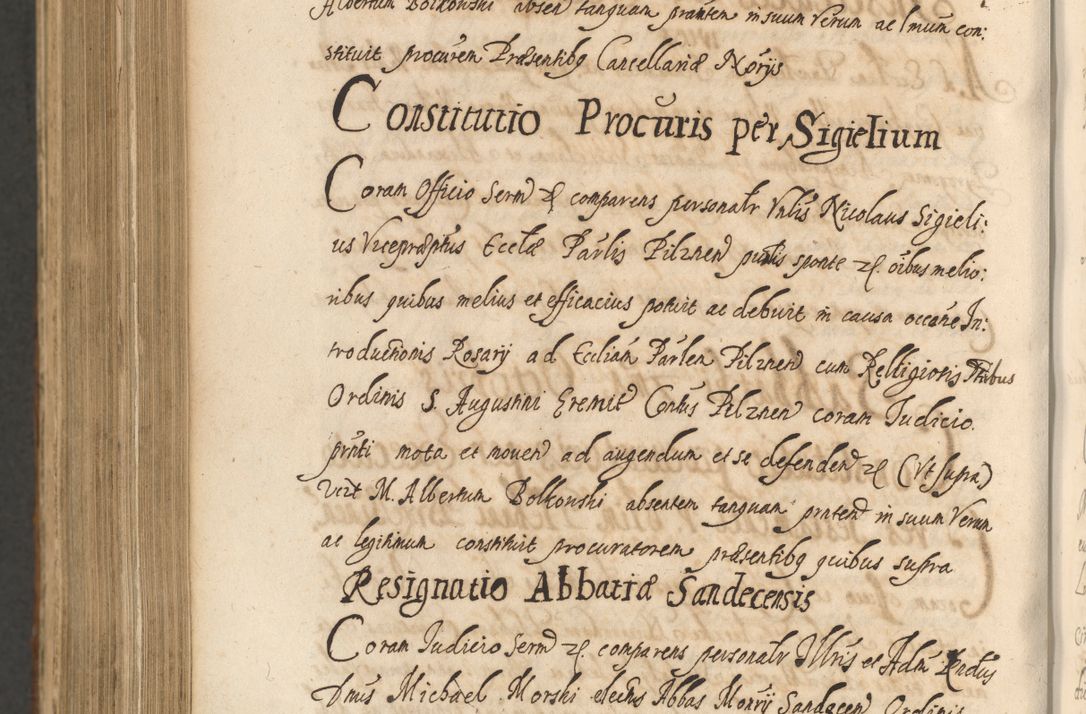 Albertum Bolkonski absen tanquam prænten in suum Verum ac lmum con:
stituit procurem Præsentibq Cancellariæ Norijs
Constitutio Procuris per Sigielium
Coram Officio Serm &c comparens personalr Vnlis Nicolaus Sigieli:
us Vicepræptus Ecclæ Parlis Pilznen sponte &c. oibus melio:
ribus quibus melius et efficacius potuit ac debuit in causa occāne In:
troductionis Rosarij ad Eccliam Parlem Pilznen cum Relligiosis Frībus
Ordinis S. Augustini Eremit Contus Pilznen coram Iudicio
prnti mota et moven ad augendum et se defenden &c (Vt supra)
Vert M. Albertum Bolkonski absentem tanquam prnten in suum Verum
ac legitimum constituit procuratorem præsentibq quibus supra
Resignatio Abbatiæ Sandecensis
Coram Iudicio Serm &c. comparens personalr Illris et Adm Rndus
Dnus Michael Morski electus Abbas Monrij Sandecen Ordinis